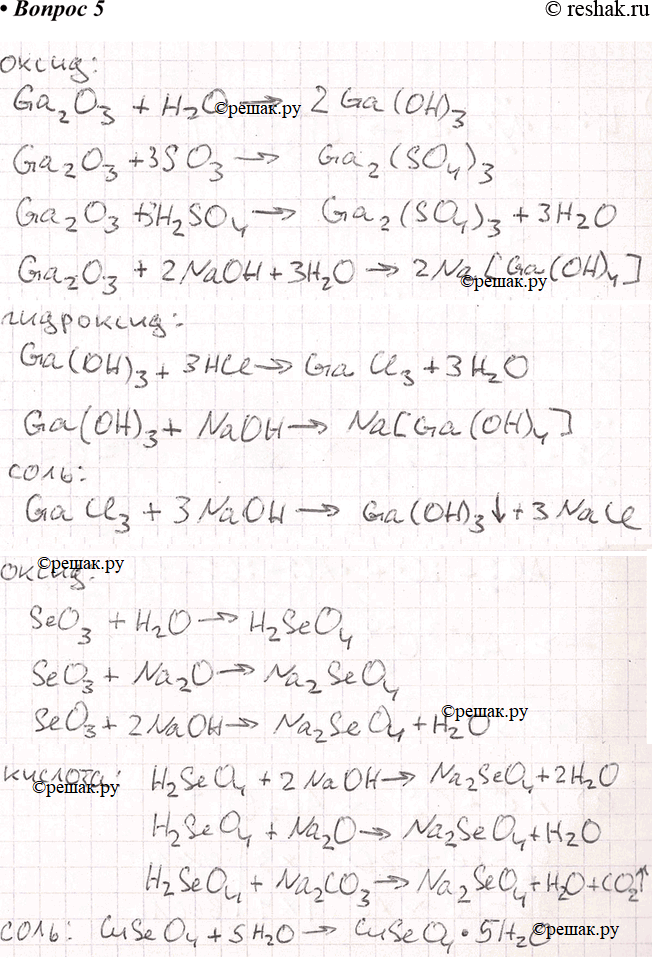 • Вопрос 5
© reshak.ru
оксид:
Ga₂O₃ + H₂O → 2Ga(OH)₃
©решак.ру
Ga₂O₃ + 3SO₃ → Ga₂(SO₄)₃
Ga₂O₃ + 3H₂SO₄ → Ga₂(SO₄)₃ + 3H₂O
Ga₂O₃ + 2NaOH + 3H₂O → 2Na[Ga(OH)₄]
©решак.ру
гидроксид:
Ga(OH)₃ + 3HCl → GaCl₃ + 3H₂O
Ga(OH)₃ + NaOH → Na[Ga(OH)₄]
соль:
GaCl₃ + 3NaOH → Ga(OH)₃↓ + 3NaCl
©решак.ру
оксид:
SeO₃ + H₂O → H₂SeO₄
SeO₃ + Na₂O → Na₂SeO₄
©решак.ру
SeO₃ + 2NaOH → Na₂SeO₄ + H₂O
кислота: H₂SeO₄ + 2NaOH → Na₂SeO₄ + 2H₂O
©решак.ру
H₂SeO₄ + Na₂O → Na₂SeO₄ + H₂O
H₂SeO₄ + Na₂CO₃ → Na₂SeO₄ + H₂O + CO₂↑
соль: CuSeO₄ + 5H₂O → CuSeO₄•5H₂O
©решак.ру